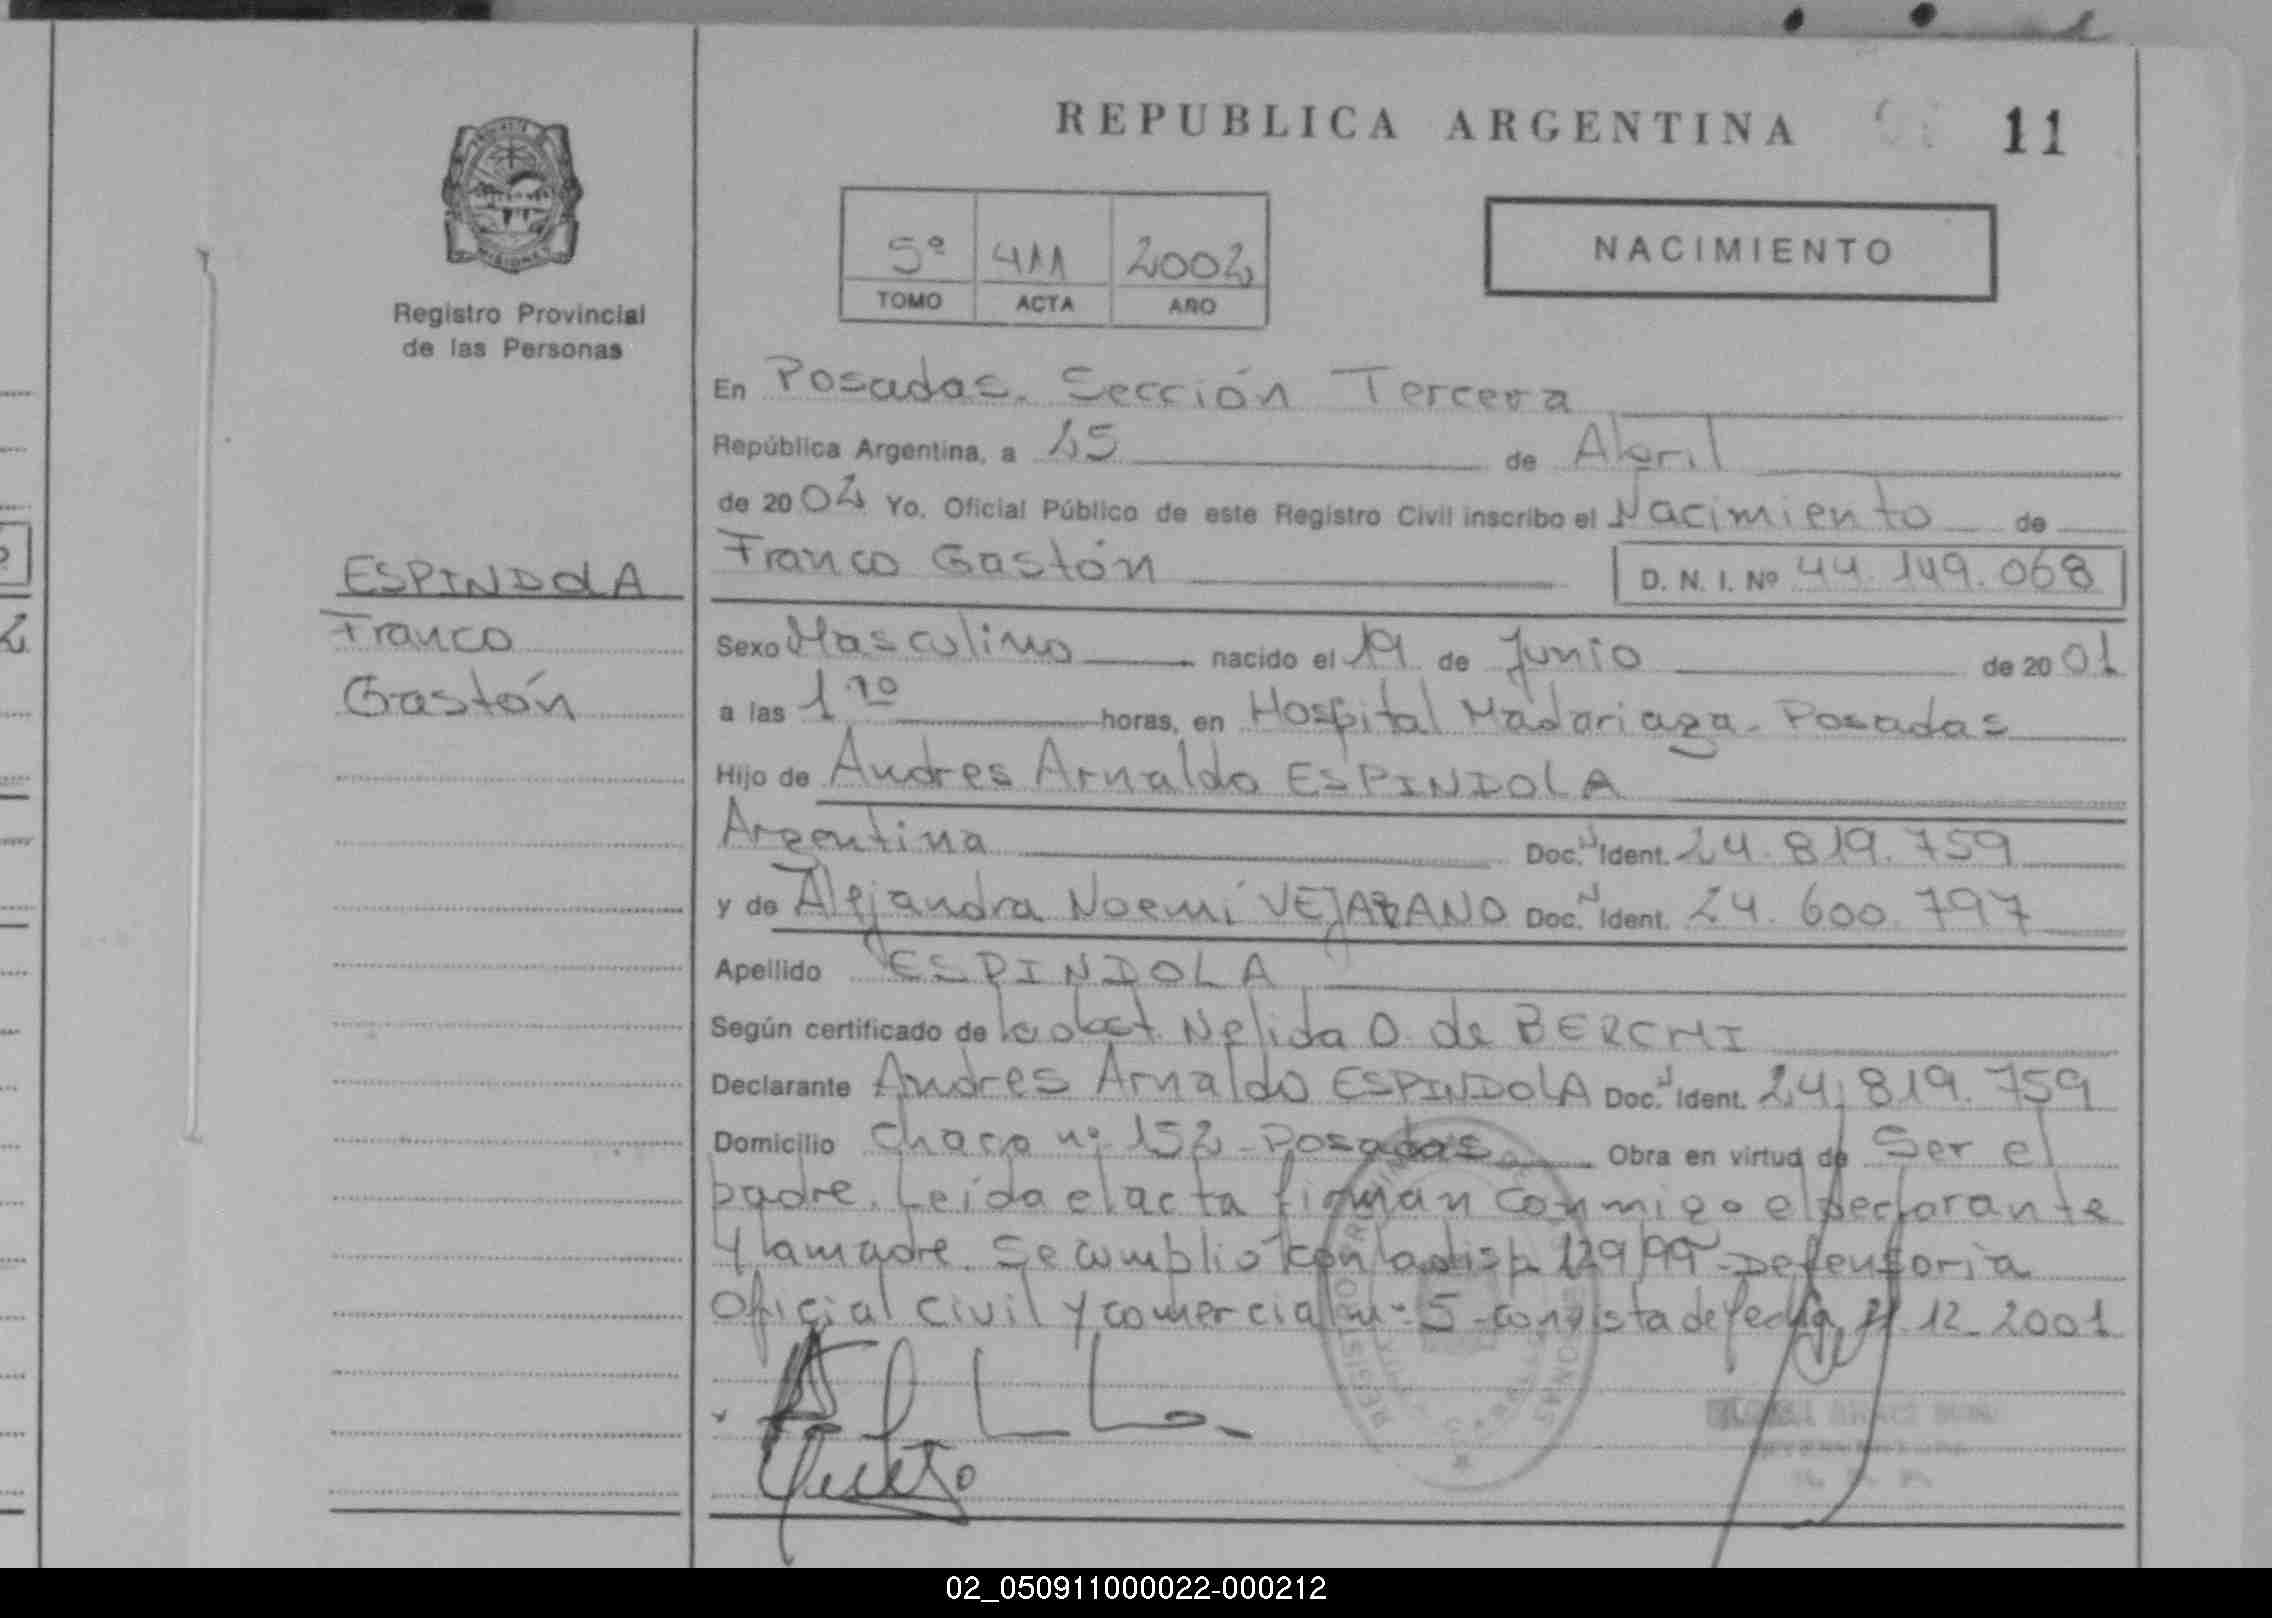 REPUBLICA ARGENTINA 11
5º 411 2002
TOMO ACTA AÑO
NACIMIENTO
Registro Provincial
de las Personas
ESPINDOLA
Franco
Gastón
En Posadas. Sección Tercera
República Argentina, a 15 de Abril
de 2002 Yo, Oficial Público de este Registro Civil inscribo el Nacimiento de
Franco Gastón D. N. I. Nº 44.149.068
Sexo Masculino nacido el 19 de Junio de 2001
a las 1 10 horas, en Hospital Madariaga - Posadas
Hijo de Andres Arnaldo ESPINDOLA
Argentina Doc. Ident. 24.819.759
y de Alejandra Noemí VEJARANO Doc. Ident. 24.600.797
Apellido ESPINDOLA
Según certificado de la obst. Nelida O. de BERCHI
Declarante Andres Arnaldo ESPINDOLA Doc. Ident. 24.819.759
Domicilio Chaco nº 152 - Posadas Obra en virtud de Ser el
padre. Leída el acta firman conmigo el declarante
y la madre. Se cumplió con la disp. 129/99 - Defensoria
Oficial Civil y comercial nº 5 - con vista de fecha 21.12.2001
02_050911000022-000212